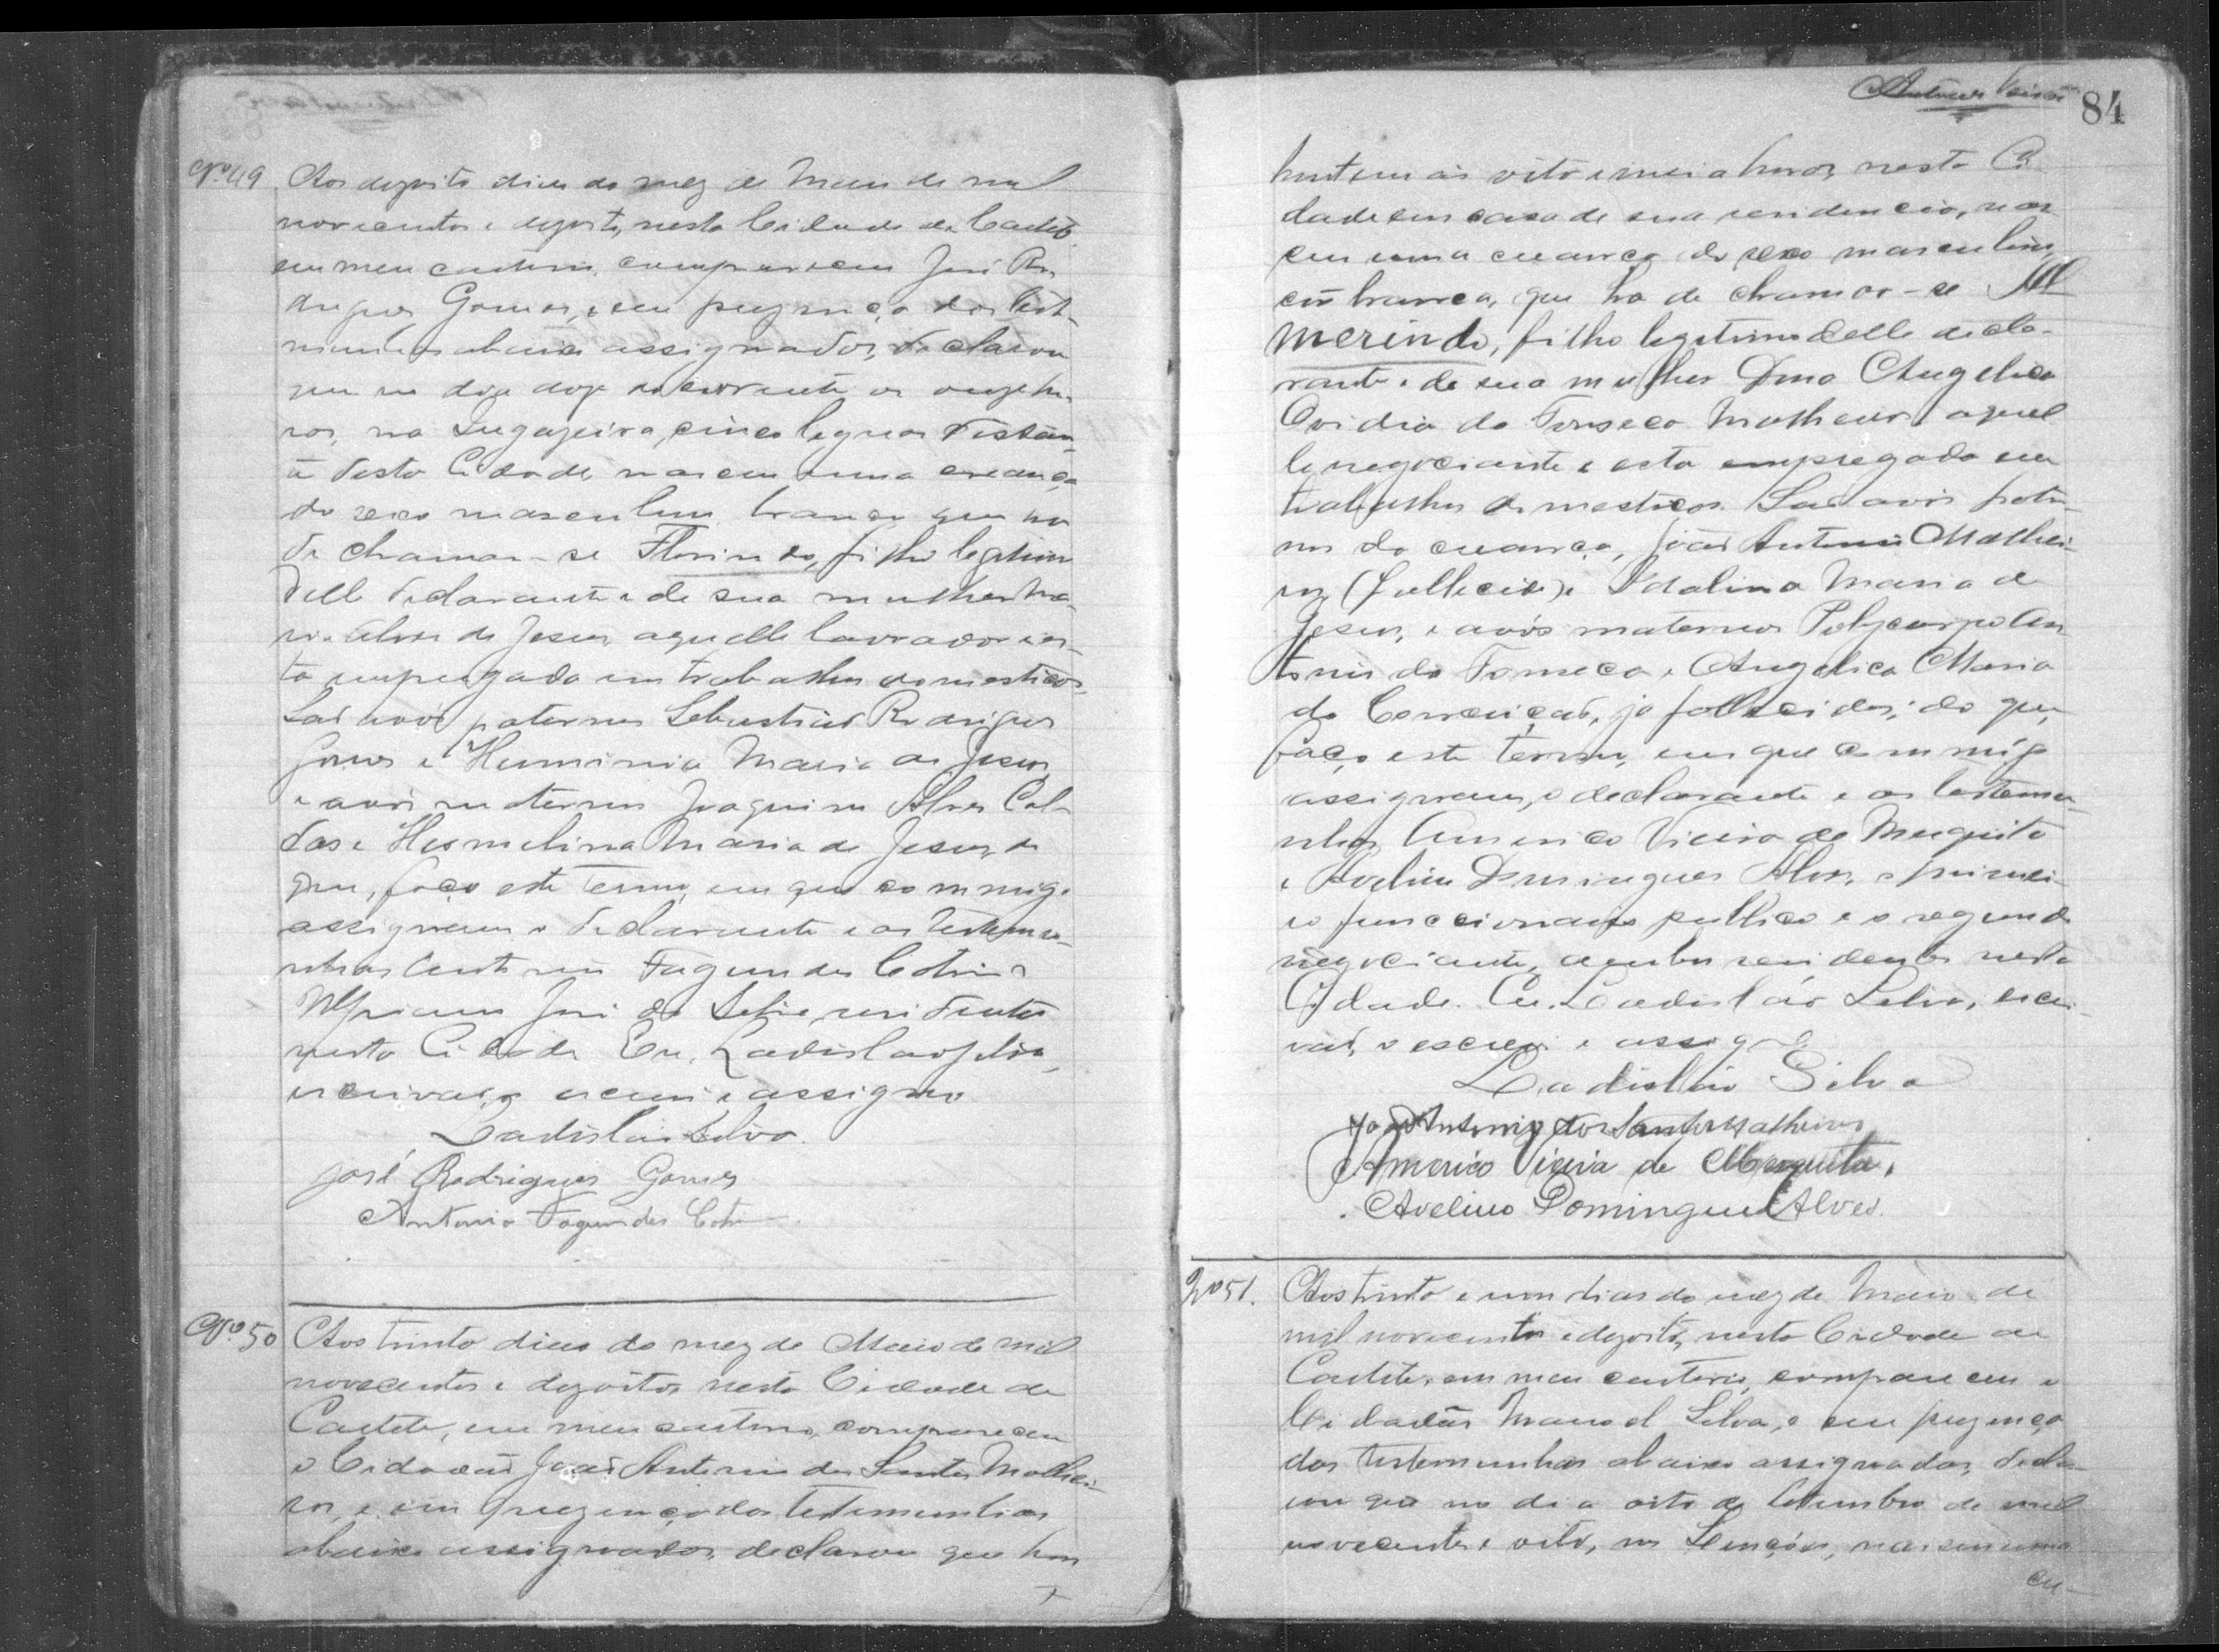 Nº 49 Aos dezoito dias do mez de Maio de mil
novecentos e dezoito, nesta Cidade de Caeteté
em meu cartorio, compareceu José Ro-
drigues Gomes, e em prezença das test-
munhas abaixo assignados, declarou
que no dia doze do corrente as onze ho-
ras, na Ingazeira, cinco leguas distan-
te desta Cidade, nasceu uma creança
do sexo masculino, branca que ha
de chamar-se Florindo, filho legitimo
delle declarante e de sua mulher Ma-
ria Alves de Jesus, aquelle lavrador e es-
ta empregada em trabalhos domesticos.
São avós paternos Sebastião Rodrigues
Gomes e Herminia Maria de Jesus
e avós maternos Joaquim Alves Cal-
das e Hermelina Maria de Jesus, do
que, faço este termo, em que commigo
assignam o declarante e as testemu-
nhas Antonio Fagundes Cotrim e
José da Silva, residentes
nesta Cidade. Eu, Ladislao Silva,
escrivão, o escrevi e assigno
Ladislao Silva.
José Rodrigues Gomes
Antonio Fagundes Cotrim
Nº 50 Aos trinta dias do mez de Maio de mil
novecentos e dezoito, nesta Cidade de
Caeteté, em meu cartorio, compareceu
o Cidadão João Antonio dos Santos Malhei-
ros, e em prezença das testemunhas
abaixo assignados, declarou que hon
84
hontem ás oito e meia horas, nesta Ci-
dade em casa de sua residencia, nas
ceu uma creança do sexo masculino,
côr branca, que ha de chamar-se Al
merindo, filho legitimo delle decla-
rante e de sua mulher Dona Angelica
Ovidia da Fonseca Malheiros, aquel
le negociante e esta empregada em
trabalhos domesticos. São avós pater-
nos da creança, João Antonio Malhei-
ros (fallecido) e Idalina Maria de
Jesus, e avós maternos Polycarpo An
tonio da Fonseca e Angelica Maria
da Conceição, já fallecidos; do que,
faço este termo, em que commigo
assignam, o declarante e as testemu-
nhas Americo Vieira de Mesquita
e Avelino Domingues Alves, o primei-
ro funccionario publico e o segundo
negociante, ambos residentes nesta
Cidade. Eu, Ladisláo Silva, escri-
vão, o escrevi e assigno
Ladisláo Silva
João Antonio dos Santos Malheiros
Americo Vieira de Mesquita,
Avelino Domingues Alves.
Nº 51. Aos trinta e um dias do mez de Maio de
mil novecentos e dezoito, nesta Cidade de
Caeteté, em meu cartorio, compareceu o
Cidadão Manoel Silva, e em prezença
das testemunhas abaixo assignadas, decla-
rou que no dia oito de Setembro de mil
novecentos e oito, nos Lençóes, nasceu uma
cre-